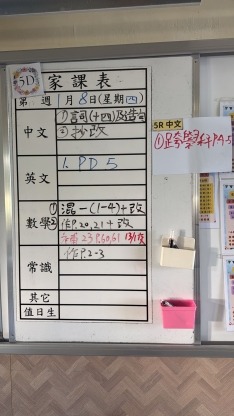 5D 家課表
第 週 1月8日(星期四)
中文 ①詞(十四)及造句
②抄改
英文 1. PD 5
數學 ①混一(1-4)+改
②作P.20,21+改
P.60,61
常識 作P.2-3
其它
值日生
5R 中文